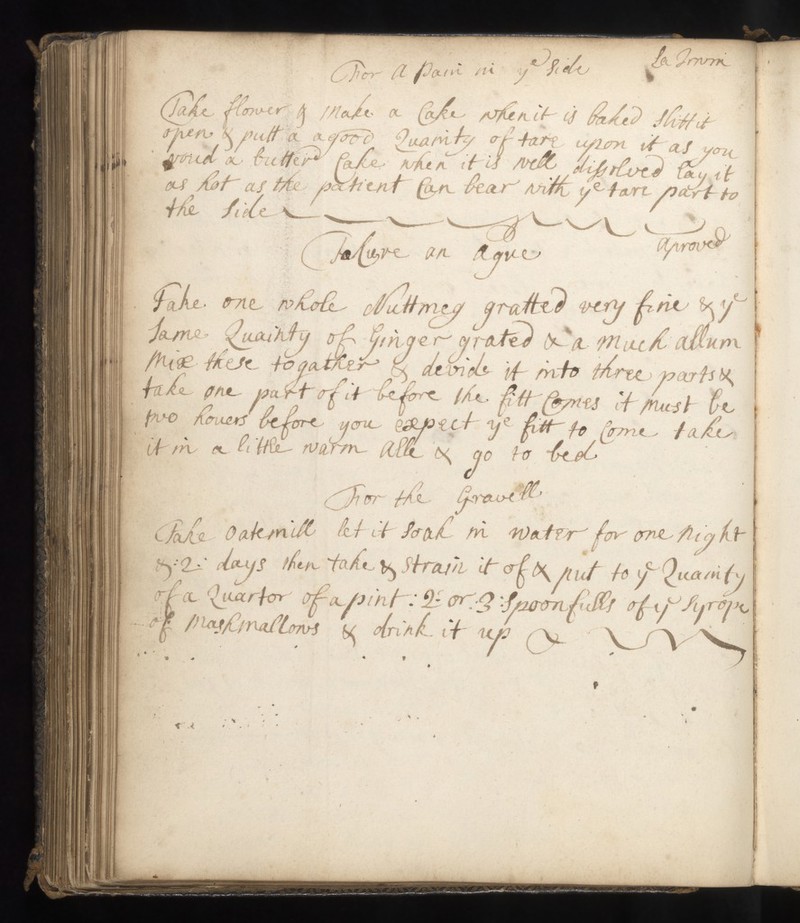 For A Pain in ye Side La Irwin
Take flower & make a Cake when it is baked slitt it
open & putt a agood Quainty of tare upon it as you
woud a butterd Cake when it is well dissolved lay it
as hot as the patient Can bear with ye tare part to
the Side
To Cure an Ague Aproved
Take one whole Nuttmeg gratted very fine & ye
Same Quainty of Ginger grated & a much allum
Mix these togather & devide it into three parts &
take one part of it before the fitt Comes it must be
two houers before you expect ye fitt to Come take
it in a little warm Alle & go to bed
For the Gravell
Take oatemill let it soak in water for one night
& :2: days then take & strain it of & put to ye Quainty
of a Quartor of a pint : 2: or :3: spoonfulls of ye Syrope
of Mashmallows & drink it up